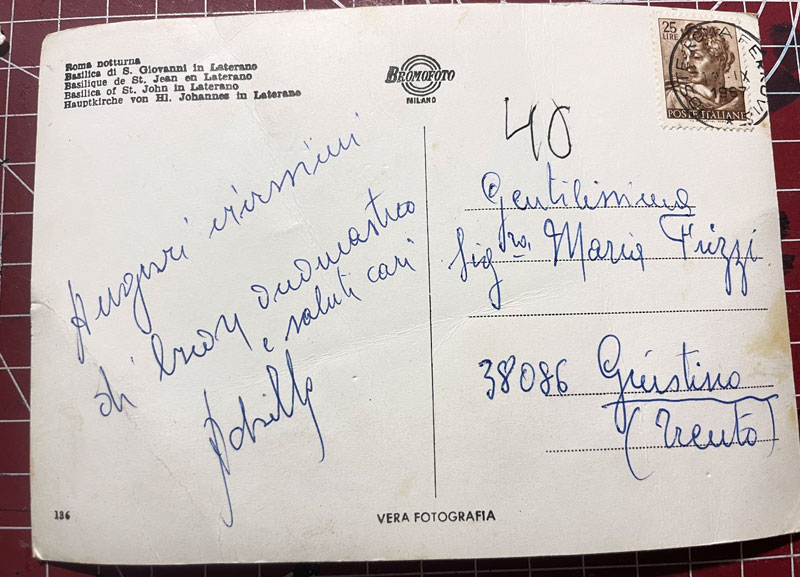 Roma notturna
Basilica di S. Giovanni in Laterano
Basilique de St. Jean en Laterano
Basilica of St. John in Laterano
Hauptkirche von Hl. Johannes in Laterane
BROMOFOTO
MILANO
25
LIRE
POSTE ITALIANE
ROMA FERROVIA
IX
40
Auguri vivissimi
di buon onomastico
e saluti cari
Achille
Gentilissima
Sig.ra Maria Frizzi
38086 Giustino
(Trento)
136
VERA FOTOGRAFIA